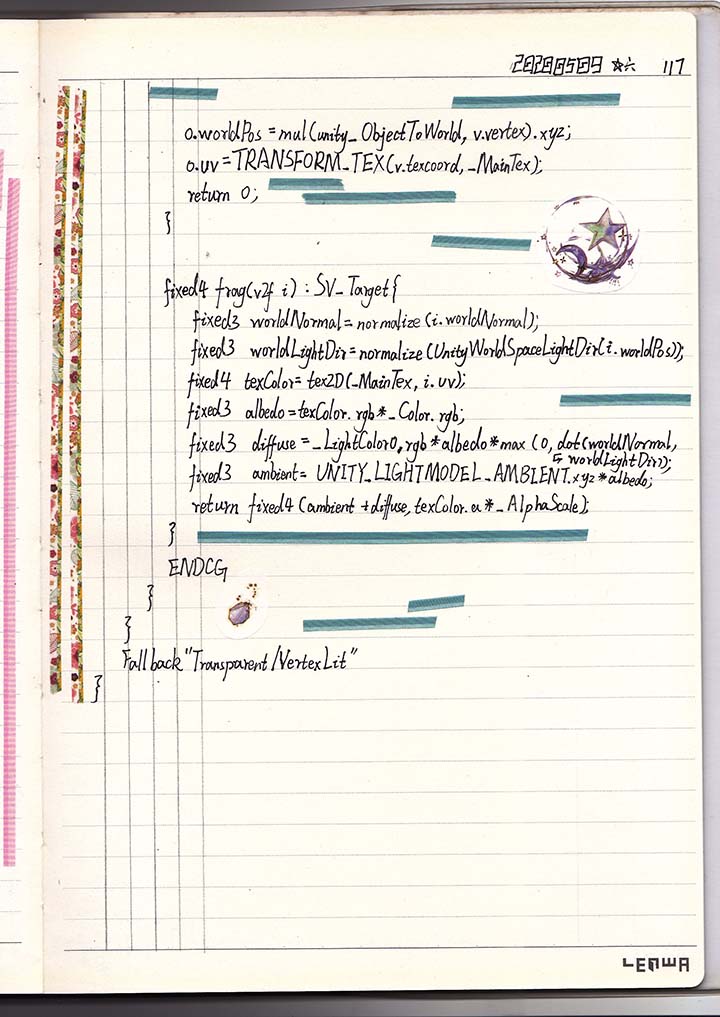 20200509 ☆六 117
o.worldPos = mul(unity_ObjectToWorld, v.vertex).xyz;
o.uv = TRANSFORM_TEX(v.texcoord, _MainTex);
return o;
}
fixed4 frag(v2f i) : SV_Target{
fixed3 worldNormal = normalize(i.worldNormal);
fixed3 worldLightDir = normalize(UnityWorldSpaceLightDir(i.worldPos));
fixed4 texColor = tex2D(_MainTex, i.uv);
fixed3 albedo = texColor.rgb * _Color.rgb;
fixed3 diffuse = _LightColor0.rgb * albedo * max(0, dot(worldNormal,
↳ worldLightDir));
fixed3 ambient = UNITY_LIGHTMODEL_AMBIENT.xyz * albedo;
return fixed4(ambient + diffuse, texColor.a * _AlphaScale);
}
ENDCG
}
}
Fallback "Transparent/VertexLit"
}